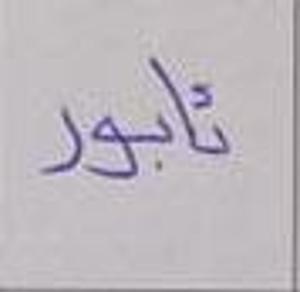 تابور